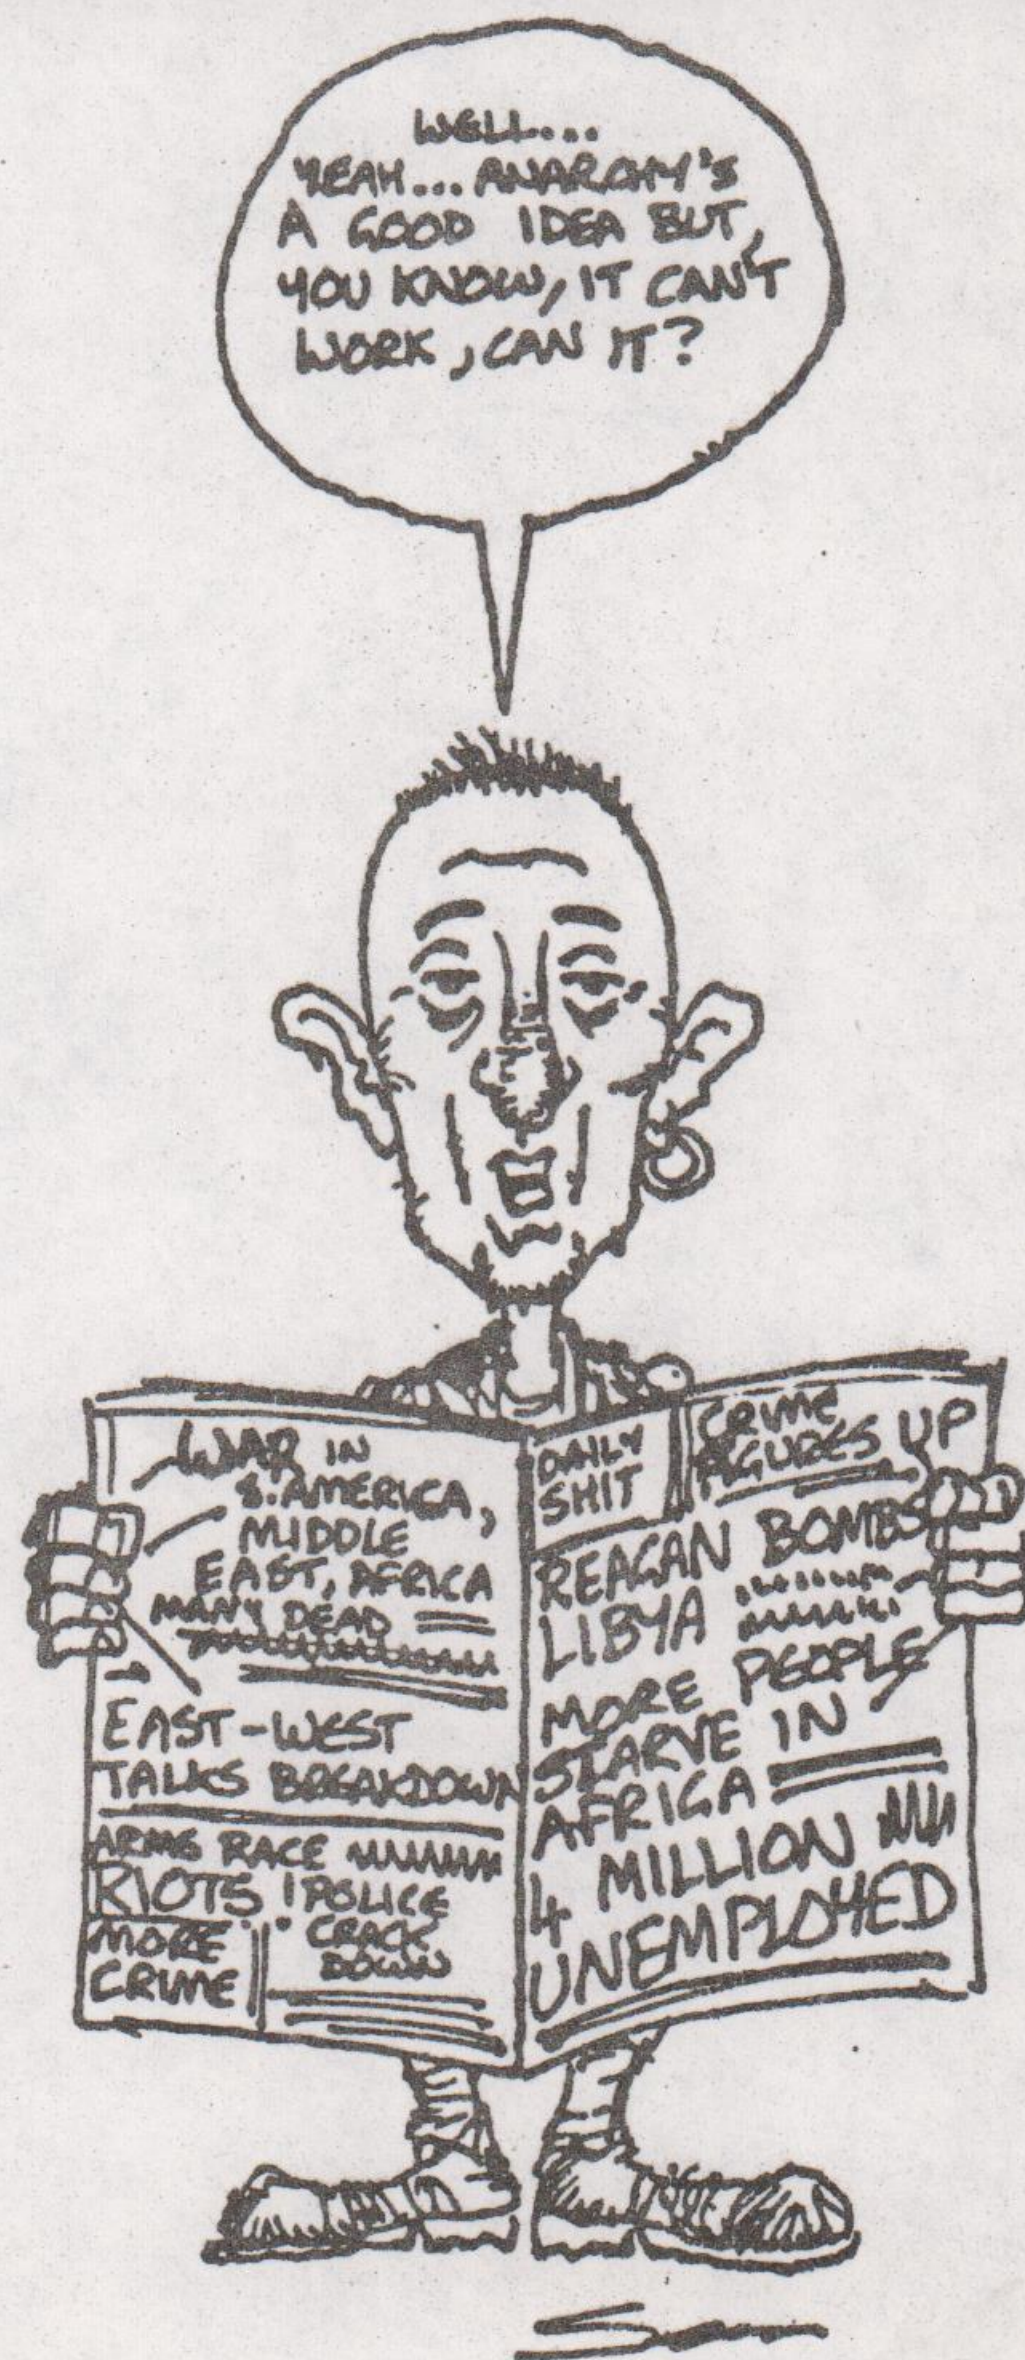 WELL....
YEAH... ANARCHY'S
A GOOD IDEA BUT,
YOU KNOW, IT CAN'T
WORK, CAN IT?
WAR IN
S. AMERICA,
MIDDLE
EAST, AFRICA
MANY DEAD
EAST-WEST
TALKS BREAKDOWN
ARMS RACE
RIOTS!
MORE
CRIME
POLICE
CRACK
DOWN
DAILY
SHIT
CRIME
FIGURES UP
REAGAN BOMBS
LIBYA
MORE PEOPLE
STARVE IN
AFRICA
4 MILLION
UNEMPLOYED